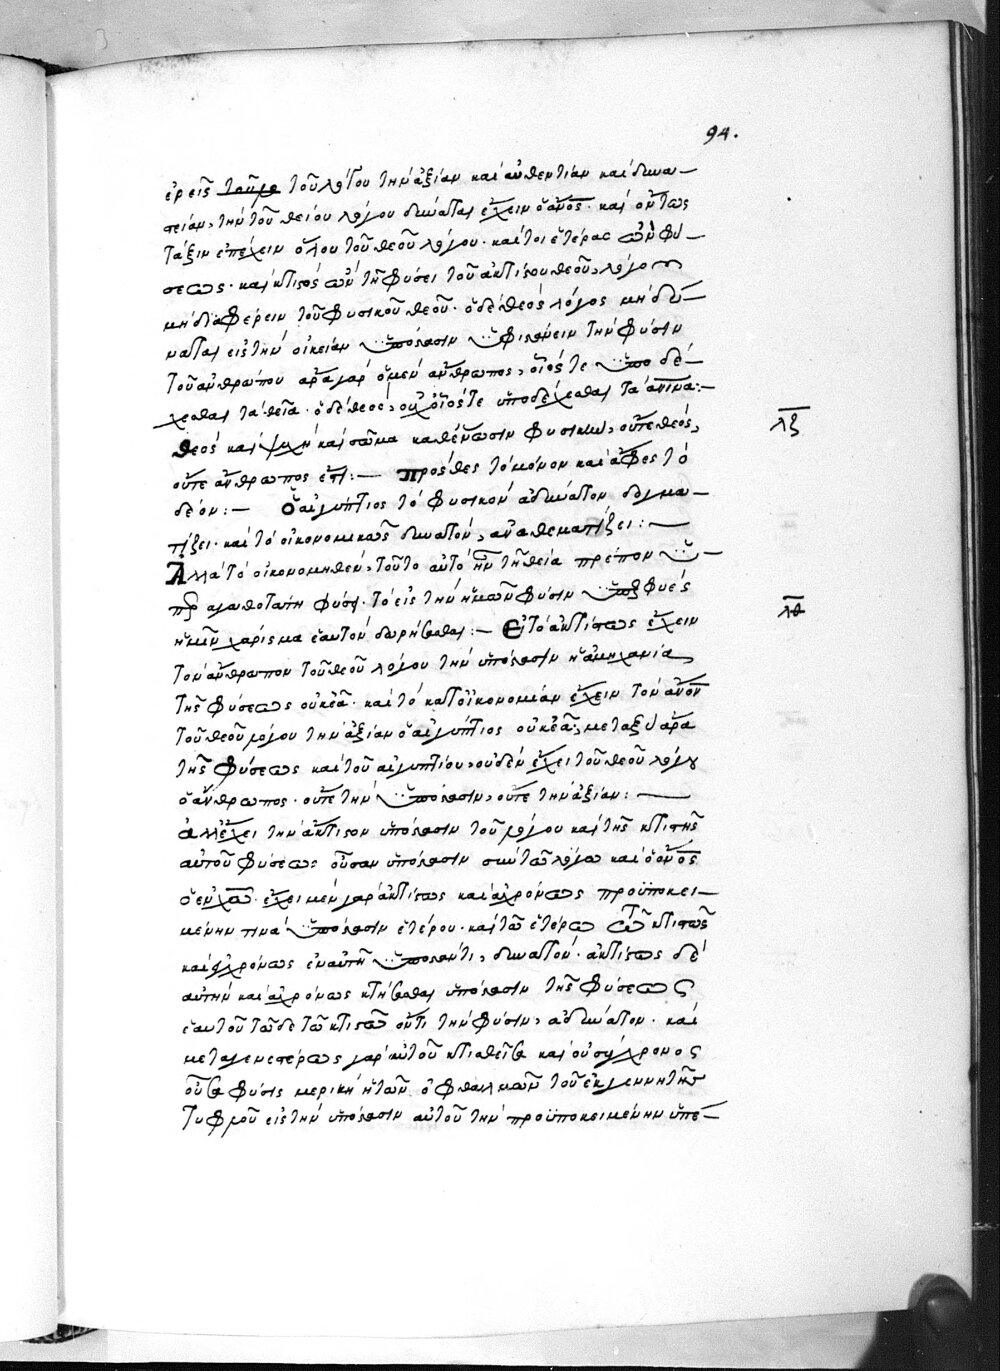 94.
ἐρεῖς τοῦ λόγου τὴν ἀξίαν καὶ αὐθεντίαν καὶ δυνα–
στείαν, τὴν τοῦ θείου λόγου δύναται ἔχειν ὁ ἄνος· καὶ οὕτως
τάξιν ἐπέχειν ὅλου τοῦ θεοῦ λόγου· καίτοι ἑτέρας ὢν φύ–
σεως· καὶ κτιστὸς ὢν τῇ φύσει τοῦ ἀκτίστου θεοῦ λόγου
μὴ διαφέρειν τοῦ φυσικοῦ θεοῦ· ὁ δὲ θεὸς λόγος μὴ δύ–
ναται εἰς τὴν οἰκείαν ὑπόστασιν τὴν φύσιν
τοῦ ἀνθρώπου ἆρα γὰρ ὁ μὲν ἄνθρωπος, οἷός τε ὑποδέ–
χεσθαι τὰ θεῖα· ὁ δὲ θεός, οὐχ οἷός τε ὑποδέχεσθαι τὰ ἀνινα:–
θεὸς καὶ ψυχὴ καὶ σῶμα καθ' ἕνωσιν φυσικὴν, οὔτε θεός,
λζ
οὔτε ἄνθρωπος ἐστι:— πρόσθες τὸ μόνον καὶ ἄφες τὸ
δέον:— ὁ αἰγύπτιος τὸ φυσικὸν ἀδύνατον δογμα–
τίζει· καὶ τὸ οἰκονομικῶς δυνατὸν, ἀναθεματίζει:—
Ἀλλὰ τὸ οἰκονομηθὲν, τοῦτο αὐτὸ ἦν τῇ θεία πρέπον
ἀγαθοτάτη φύσει· τὸ εἰς τὴν ἡμῶν φύσιν ὑπερφυὲς
λθ
ἡμῖν χάρισμα ἑαυτὸν δωρήσασθαι:— Εἰ τὸ ἀκτίστως ἔχειν
τὸν ἄνθρωπον τοῦ θεοῦ λόγου τὴν ὑπόστασιν ἡ ἀμηχανία
τῆς φύσεως οὐκ ἐᾶ· καὶ τὸ κατ' οἰκονομίαν ἔχειν τὸν ἄνον
τοῦ θεοῦ λόγου τὴν ἀξίαν ὁ αἰγύπτιος οὐκ ἐᾶ, μεταξὺ ἄρα
τῆς φύσεως καὶ τοῦ αἰγυπτίου, οὐδὲν ἔχει τοῦ θεοῦ λόγου
ὁ ἄνθρωπος· οὔτε τὴν ὑπόστασιν, οὔτε τὴν ἀξίαν:—
ἀλλ' ἔχει τὴν ἄκτιστον ὑπόστασιν τοῦ λόγου καὶ τῆς κτιστῆς
αὐτοῦ φύσεως οὖσαν ὑπόστασιν σὺν τῶ λόγω καὶ ὁ ἄνος
ὁ ἐν χω· ἔχει μὲν γὰρ ἀκτίστως καὶ ἀχρόνως προϋποκει–
μένην τινὰ ὑπόστασιν ἑτέρου· καὶ τῶ ἑτέρω κτιστῶς
καὶ χρόνως ἐν αὐτῆ ὑποστάντι, δυνατόν· ἀκτίστως δὲ
αὐτὴν καὶ ἀχρόνως κτήσασθαι ὑπόστασιν τῆς φύσεως
ἑαυτοῦ τῶδε τῶ κτιστῶ ὄντι τὴν φύσιν, ἀδύνατον· καὶ
μεταγενεστέρως γὰρ αὐτοῦ κτισθεῖσα καὶ οὐ σύγχρονος
οὖσα φύσις μερικὴ ἡ τῶν ὀφθαλμῶν τοῦ ἐκ γεννητῆς
τυφλοῦ εἰς τὴν ὑπόστασιν αὐτοῦ τὴν προϋποκειμένην ὑπε–